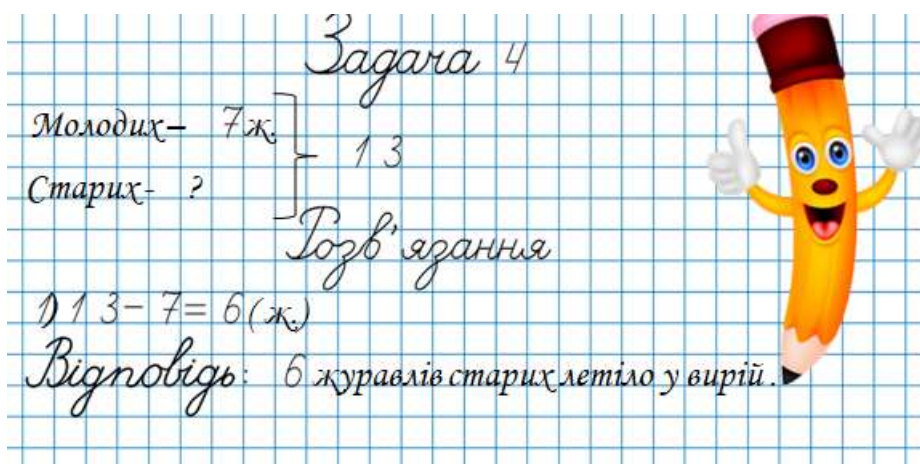 Задача 4
Молодих– 7ж.
13
Старих- ?
Розв'язання
1) 13– 7= 6(ж.)
Відповідь: 6 журавлів старих летіло у вирій.